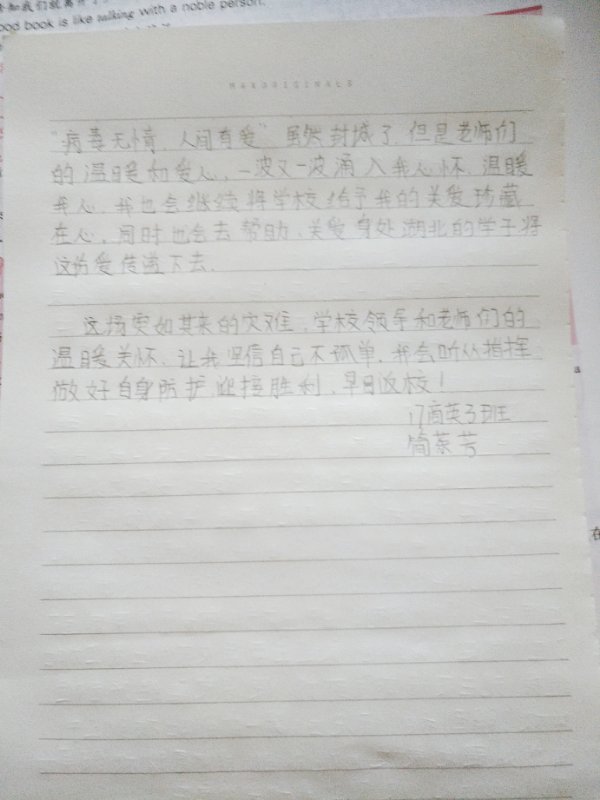 ood book is like talking with a noble person.
MAXORIGINALS
"病毒无情，人间有爱"虽然封城了，但是老师们
的温暖和爱心，一波又一波涌入我心怀，温暖
我心，我也会继续将学校给予我的关爱珍藏
在心，同时也会去帮助、关爱身处湖北的学子将
这份爱传递下去.
这场突如其来的灾难，学校领导和老师们的
温暖关怀，让我坚信自己不孤单，我会听从指挥
做好自身防护，迎接胜利，早日返校！
17商英3班
简茶芳